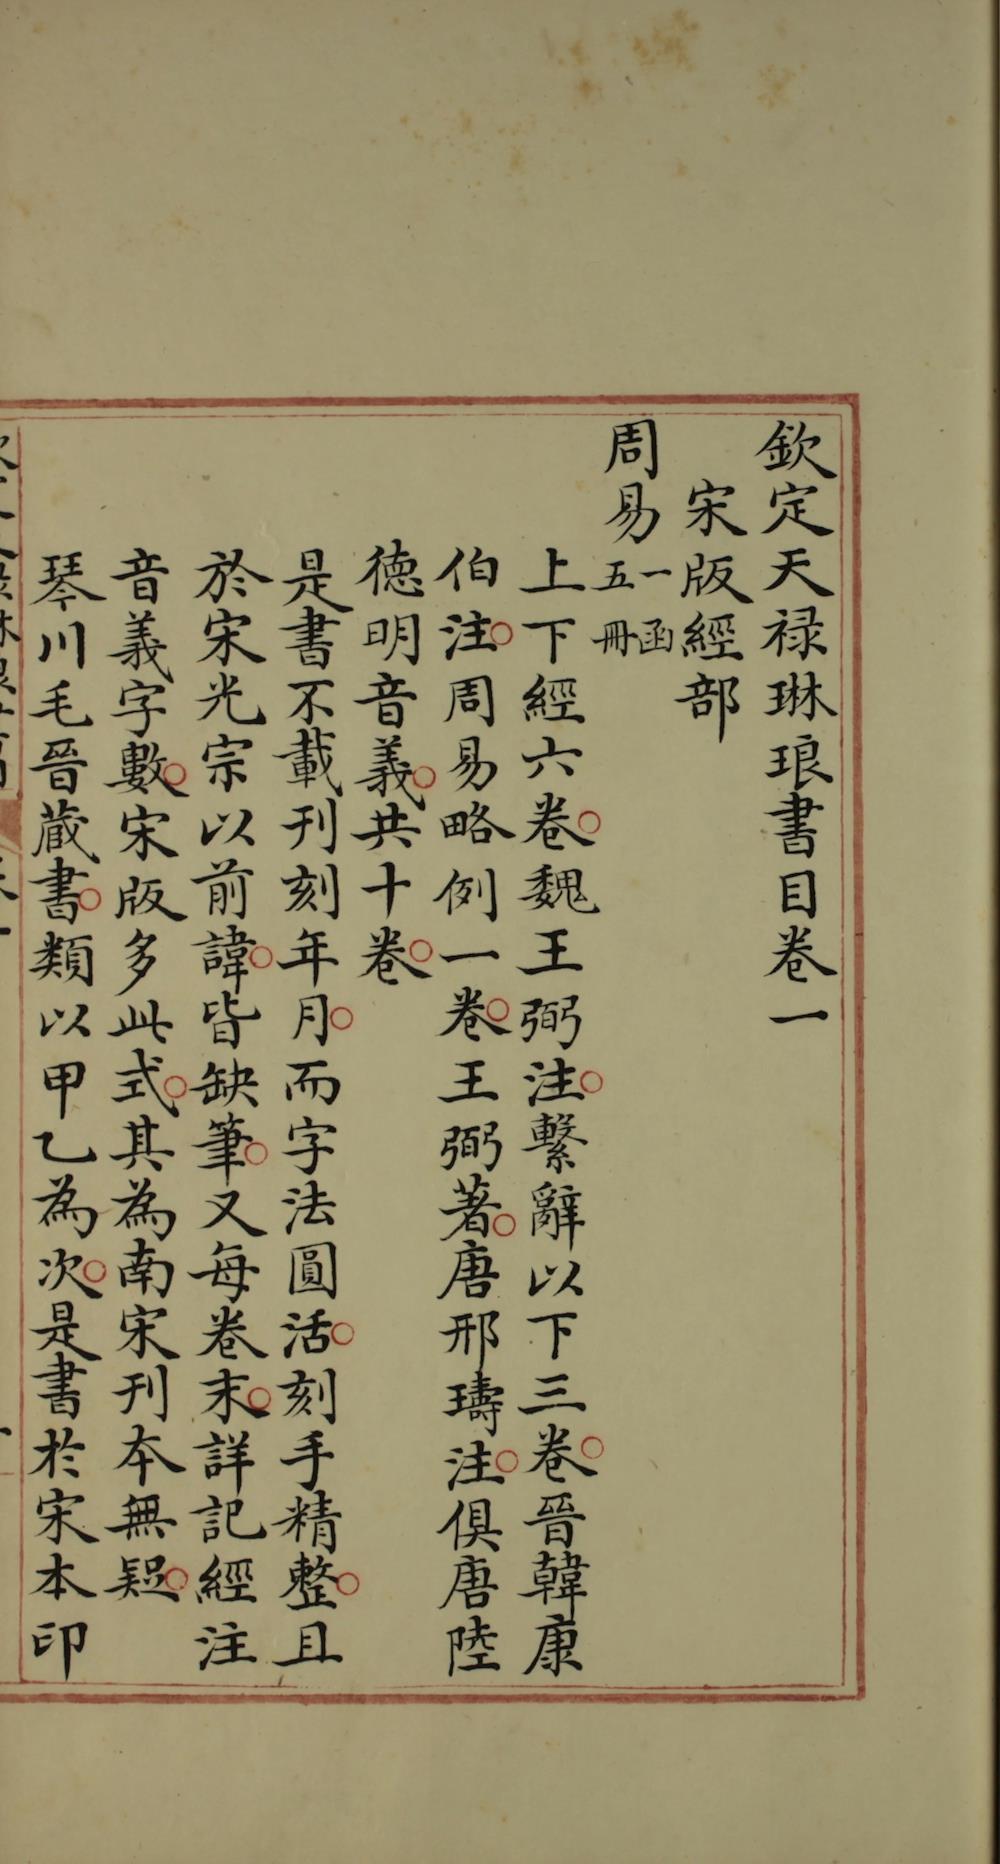 欽定天禄琳琅書目卷一
宋版經部
周易一函五冊
上下經六卷魏王弼注繫辭以下三卷晉韓康
伯注周易略例一卷王弼著唐邢璹注俱唐陸
德明音義共十卷
是書不載刊刻年月而字法圓活刻手精整且
於宋光宗以前諱皆缺筆又每卷末詳記經注
音義字數宋版多此式其為南宋刊本無疑
琴川毛晉蔵書類以甲乙為次是書於宋本印